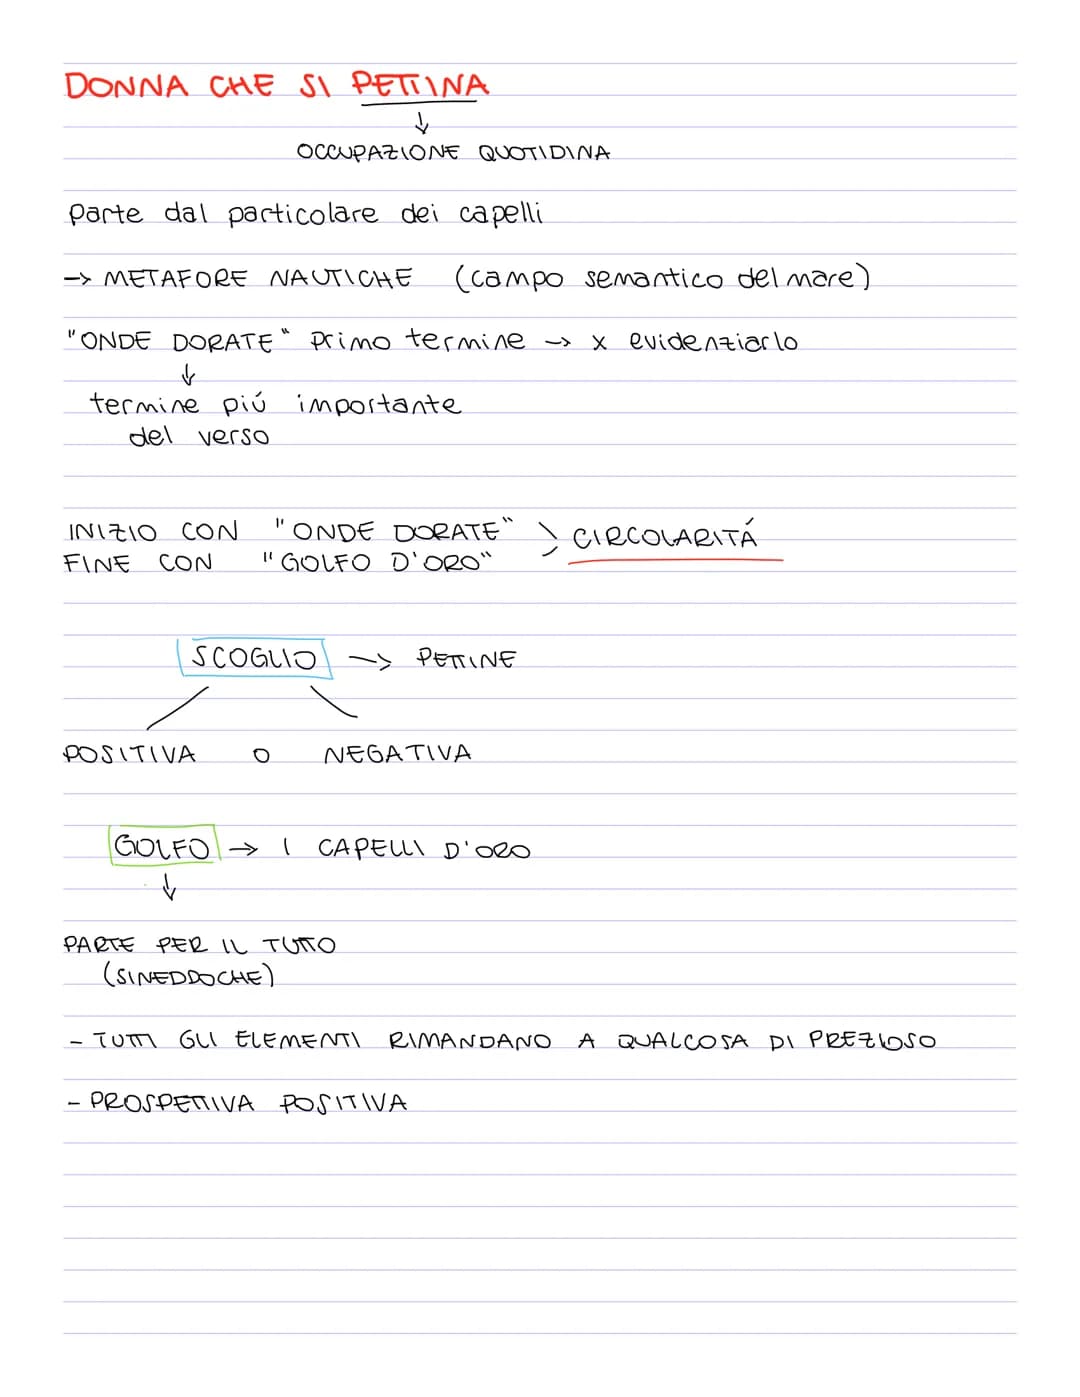 DONNA CHE SI PETTINA
↓
OCCUPAZIONE QUOTIDINA
parte dal particolare dei capelli
-> METAFORE NAUTICHE (campo semantico del mare)
"ONDE DORATE" primo termine -> x evidenziarlo
↓
termine piú importante
del verso
INIZIO CON "ONDE DORATE" > CIRCOLARITÁ
FINE CON "GOLFO D'ORO"
SCOGLIO -> PETTINE
POSITIVA O NEGATIVA
GOLFO -> I CAPELLI D'ORO
↓
PARTE PER IL TUTTO
(SINEDDOCHE)
- TUTTI GLI ELEMENTI RIMANDANO A QUALCOSA DI PREZIOSO
- PROSPETTIVA POSITIVA